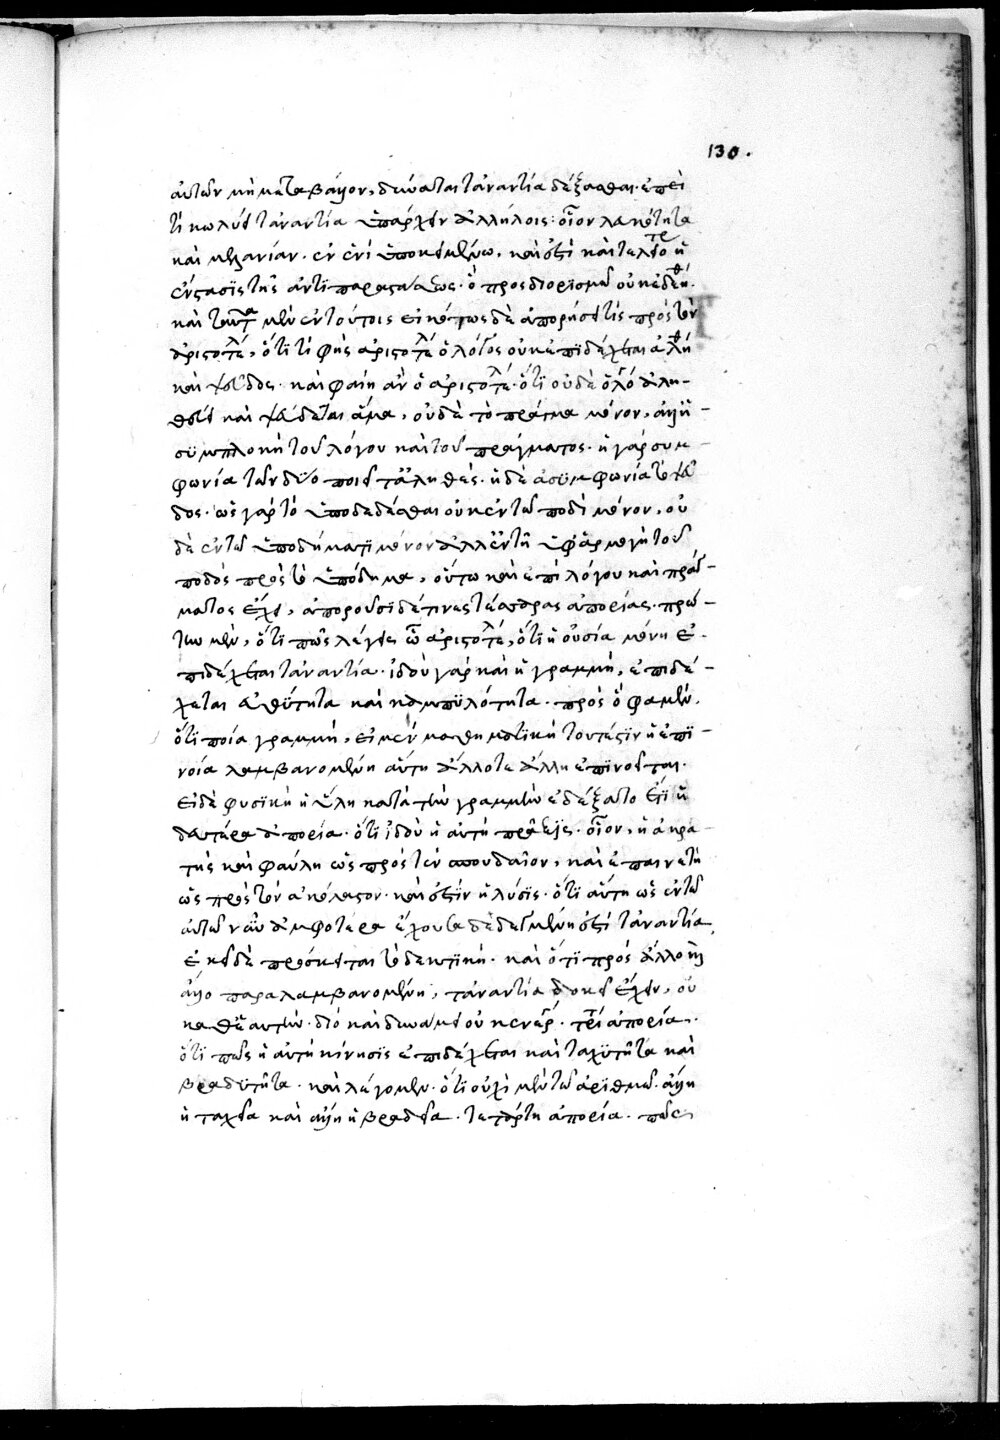 130.
αὐτῶν μὴ μεταβάλλον, δύναται τἀναντία δέξασθαι· ἐπεὶ
τί κωλύει τἀναντία ὑπάρχειν ἀλλήλοις· οἷον λευκότητα
καὶ μελανίαν· ἐν ἑνὶ ὑποκειμένω· καὶ ἐστὶ καὶ τοῦτο ἡ
ἔνστασις τῆς ἀντιπαραστάσεως· ὁ προσδιορισμὸς οὐκ ἐδέη·
καὶ ταῦτα μὲν ἐν τούτοις εἰκότως δὲ ἀπορήσει τίς πρὸς τὸν
ἀριστοτέλη, ὅτι τί φῂς ἀριστοτέλη ὁ λόγος οὐκ ἐπιδέχεται ἀλήθειαν
καὶ ψεῦδος· καὶ φαίη ἂν ὁ ἀριστοτέλης· ὅτι οὐδὲ ὁ λόγος ἀλη-
θεύει καὶ ψεύδεται ἅμα, οὐδὲ τὸ πρᾶγμα μόνον, ἀλλ' ἡ
συμπλοκὴ τοῦ λόγου καὶ τοῦ πράγματος· ἡ γὰρ συμ-
φωνία τῶν δύο ποιεῖ τἀληθές· ἡ δὲ ἀσυμφωνία τὸ ψεῦ
δος· ὡς γὰρ τὸ ὑποδεδέσθαι οὐκ ἐν τῶ ποδὶ μόνον, οὐ
δὲ ἐν τῶ ὑποδήματι μόνον ἀλλ' ἐν τῆ ἐφαρμογῆ τοῦ
ποδὸς πρὸς τὸ ὑπόδημα, οὕτω καὶ ἐπὶ λόγου καὶ πράγ-
ματος ἔχει, ἀποροῦσι δέ τινες τέσσαρας ἀπορίας· πρώ-
την μὲν, ὅτι πῶς λέγεις ὦ ἀριστοτέλη, ὅτι ἡ οὐσία μόνη ἐ-
πιδέχεται τἀναντία· ἰδοὺ γὰρ καὶ ἡ γραμμὴ, ἐπιδέ-
χεται εὐθύτητα καὶ καμπυλότητα· πρὸς ὅ φαμεν,
ὅτι ποία γραμμὴ, εἰ μὲν μαθηματικὴ τουτέστιν ἡ ἐπι-
νοία λαμβανομένη αὕτη ἄλλοτε ἄλλη ἐπινοεῖται·
εἰ δὲ φυσικὴ ἡ ὕλη κατὰ τὴν γραμμὴν ἐδέξατο ἔτι ἡ
δευτέρα ἀπορία· ὅτι ἰδοὺ ἡ αὐτὴ πρᾶξις· οἷον, ἡ ἀκρα-
τὴς καὶ φαύλη ὡς πρὸς τὸν σπουδαῖον, καὶ ἐπαινετὴ
ὡς πρὸς τὸν ἀκόλαστον· καὶ ἐστὶν ἡ λύσις· ὅτι αὕτη ὡς ἐν τῶ
αὐτῶ νῦν ἀμφότερα ἔχουσα δεδειγμένη ἐστὶ τἀναντία
ἐκεῖ δὲ πρόσκειται τὸ δεκτικὴ· καὶ ὅτι πρὸς ἄλλο καὶ
ἄλλο παραλαμβανομένη, τἀναντία δοκεῖ ἔχειν, οὐ
καθ' ἑαυτήν· διὸ καὶ δυνάμει οὐκ ἐνεργεία· τρίτη ἀπορία·
ὅτι πῶς ἡ αὐτὴ κίνησις ἐπιδέχεται καὶ ταχυτῆτα καὶ
βραδυτῆτα· καὶ λέγομεν· ὅτι οὐχὶ μὲν τῶ ἀριθμῶ· ἄλλη
ἡ ταχεῖα καὶ ἄλλη ἡ βραδεῖα· τετάρτη ἀπορία· πῶς